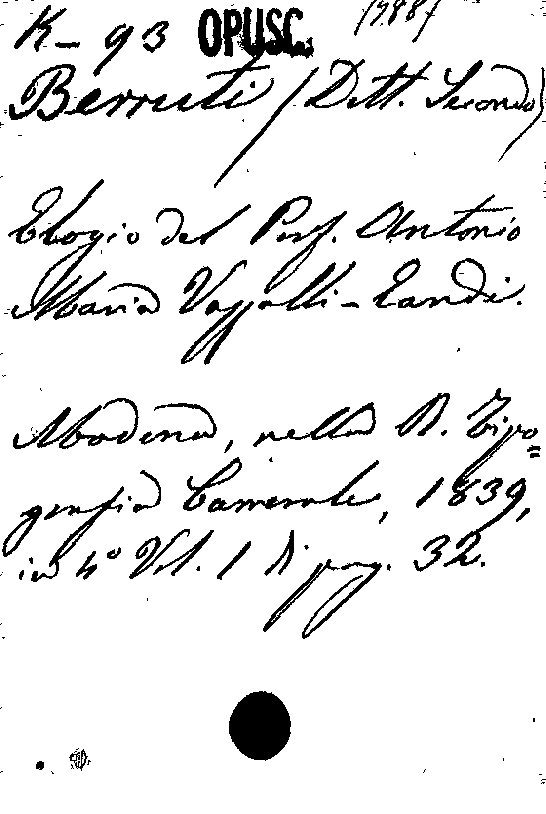 K - 93 OPUSC.
Berruti (Dott. Secondo)
Elogio del Prof. Antonio
Maria Vassalli-Eandi.
Modena, nella R. Tipo=
grafia Camerale, 1839,
in 4° Vol. 1 di pag. 32.